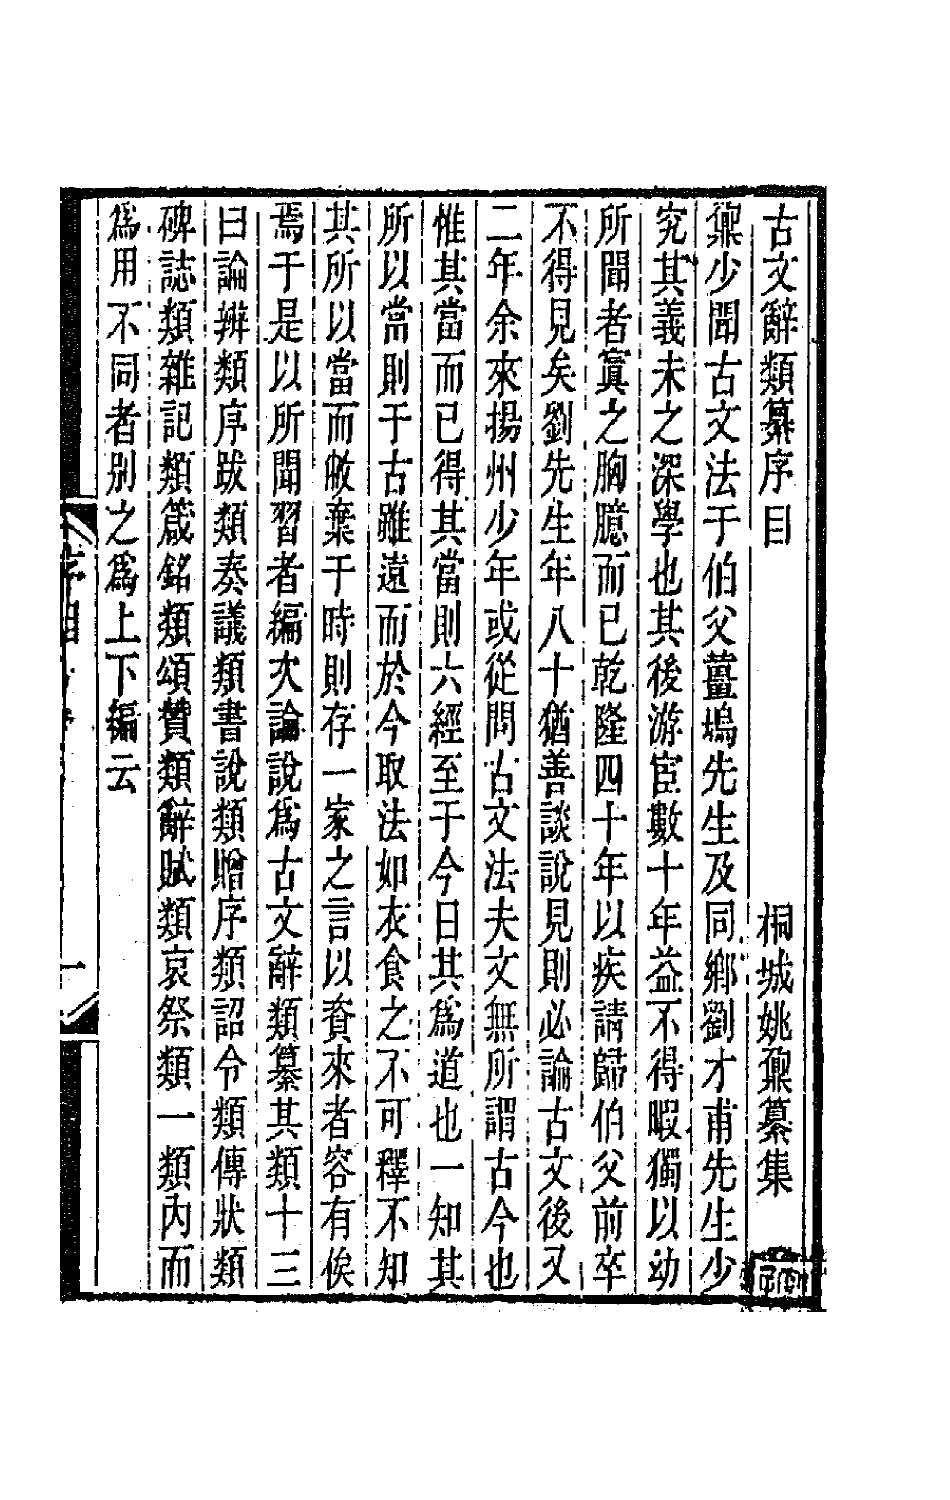 古文辭類纂序目
桐城姚鼐纂集
鼐少聞古文法于伯父薑塢先生及同鄉劉才甫先生少
究其義未之深學也其後游宦數十年益不得暇獨以幼
所聞者寘之胸臆而已乾隆四十年以疾請歸伯父前卒
不得見矣劉先生年八十猶善談說見則必論古文後又
二年余來揚州少年或從問古文法夫文無所謂古今也
惟其當而已得其當則六經至于今日其為道也一知其
所以當則于古雖遠而於今取法如衣食之不可釋不知
其所以當而敝棄于時則存一家之言以資來者容有俟
焉于是以所聞習者編次論說為古文辭類纂其類十三
曰論辨類序跋類奏議類書說類贈序類詔令類傳狀類
碑誌類雜記類箴銘類頌贊類辭賦類哀祭類一類內而
為用不同者別之為上下編云
序目
一